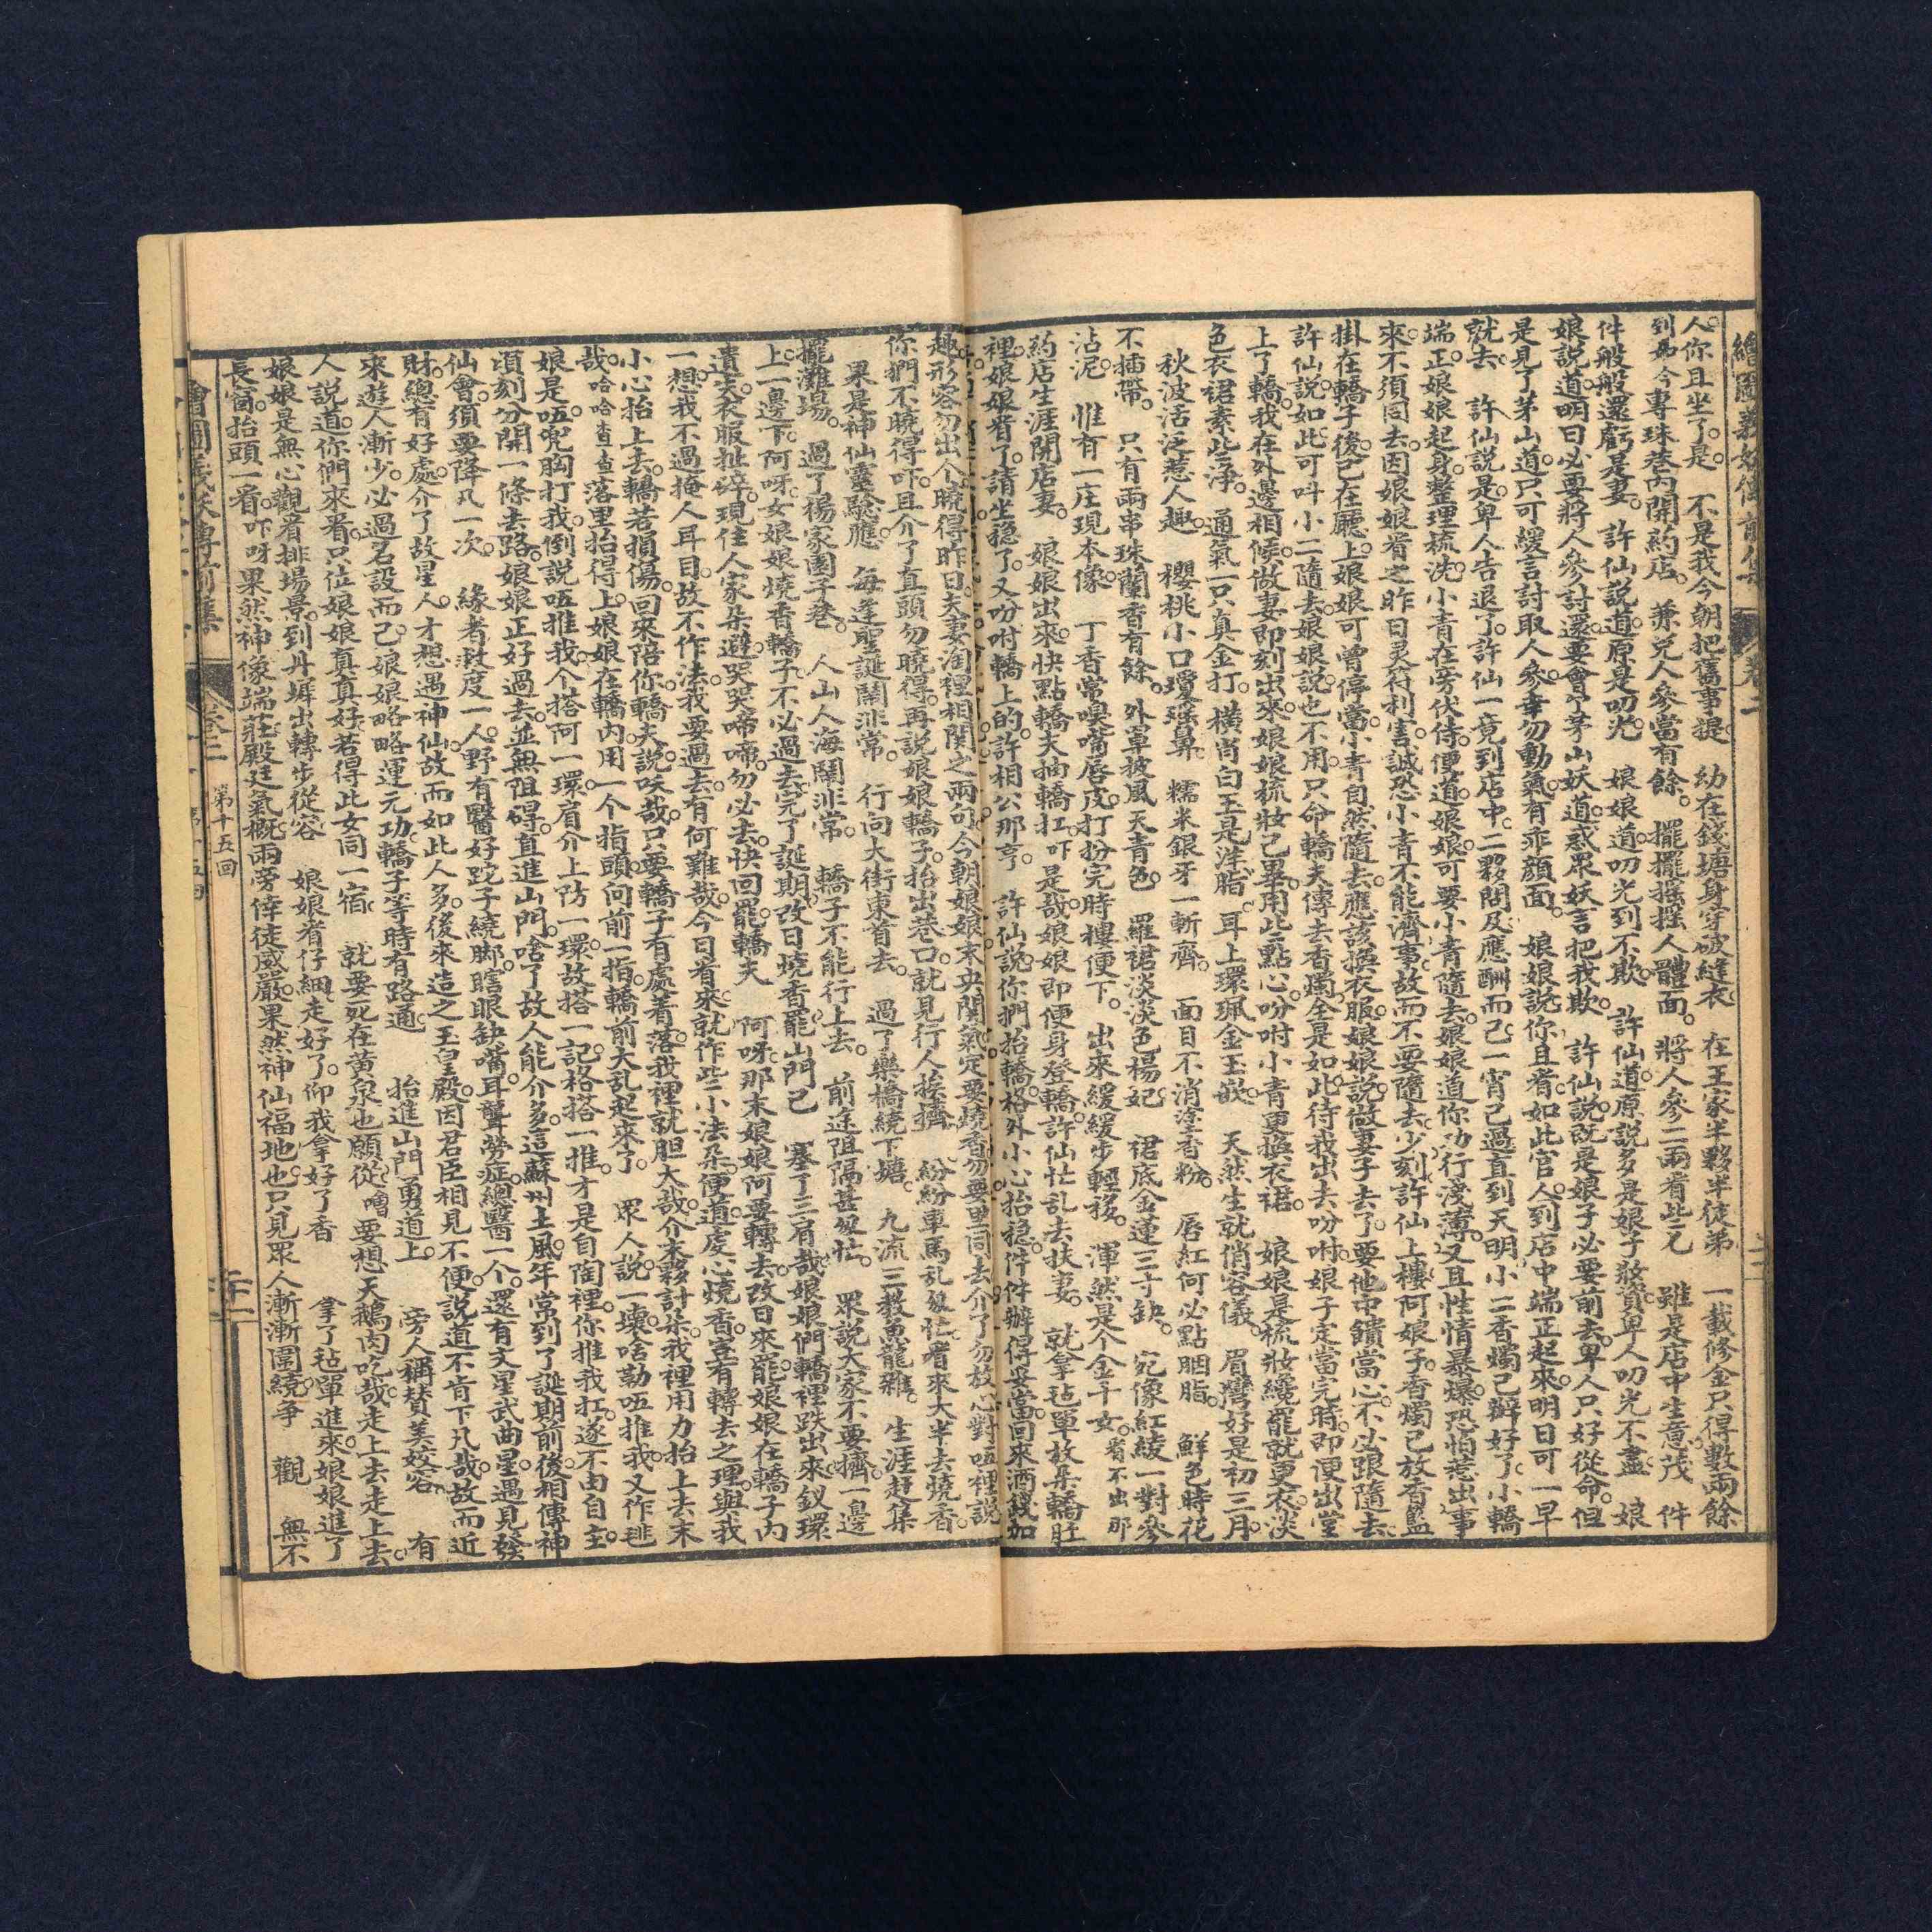 繪圖義妖傳前集 卷二
人。你且坐了。是 不是我今朝把舊事提 幼在錢塘身穿破縫衣 在王家半夥半徒弟 一載修金只得數兩餘
到如今專珠巷內開葯店。兼兌人參當有餘。擺擺搖搖人體面。將人參二兩看些兄 雖是店中生意茂 件
件般般還虧是妻 許仙說道。原是叨光 娘娘道。叨光到不欺 許仙道。原說多是娘子敬資。卑人叨光不盡 娘
娘說道。明日必要將人參討還。要會會茅山妖道。惑眾妖言把我欺。 許仙說。旣是娘子必要前去。卑人只好從命。但
是見了茅山道。只可緩言討取人參。幸勿動氣。有乖顏面。 娘娘說。你且看。如此官人。到店中端正起來。明日可一早
就去。 許仙說。是。卑人告退了。許仙一竟到店中。二夥問及。應酬而已。一宵已過。直到天明。小二香燭已辦好了。小轎
端正。娘娘起身。整理梳洗。小青在旁伏侍。便道。娘娘。可要小青隨去。娘娘道。你功行淺薄。又且性情暴爆。恐怕惹出事
來。不須同去。因娘娘看之昨日灵符利害。誠恐小青不能濟事。故而不要隨去。少刻許仙上樓。阿娘子。香燭已放香籃
掛在轎子後。已在廳上。娘娘可曾停當。小青自然隨去。應該換衣服。娘娘說。做妻子去了。要他中饋當心。不必跟隨去。
許仙說。如此可呌小二隨去。娘娘說。也不用。只命轎夫傳去香燭。全是如此。待我出去吩咐。娘子定當完時。即便出堂
上了轎。我在外邊相候。做妻即刻出來。娘娘梳妝已畢。用些點心。吩咐小青更換衣裙。 娘娘是梳妝纔罷就更衣。淡
色衣裙素些淨。通氣一只真金打。橫肯白玉是洋脂。耳上環珮金玉嵌。 天然生就俏容儀。眉彎好是初三月。
秋波活泛惹人趣。 櫻桃小口瓊瑤鼻。糯米銀牙一斬齊。 面目不消塗香粉。唇紅何必點胭脂。 鮮色時花
不插帶。只有兩串珠蘭香有餘。外罩披風天青色。 羅裙淡淡色楊妃。 裙底金蓮三寸缺。 宛像紅綾一對參
沾泥。惟有一庄現本像。丁香常嗅嘴唇皮。打扮完時樓便下。 出來緩緩步輕移。渾然是个金千女。看不出那
葯店生涯開店妻。 娘娘出來。快點轎夫抽轎扛。吓。是哉。娘娘即便身登轎。許仙忙乱去扶妻。 就拿毡單放朵轎肚
裡。娘娘看了。請坐穩了。又吩咐轎上的。許相公那亨。許仙說。你們抬轎。格外小心抬穩。件件辦得妥當。回來酒錢加
趣。形容勿出个。曉得昨日夫妻淘裡相關之兩句。今朝娘娘末央。閙氣。定要燒香。勿要里同去。介了勿放心。對唔裡說。
你們不曉得。吓。且介了真頭勿曉得。再說娘娘轎子。抬出巷口。就見行人挨擠。 紛紛車馬乱匆忙。看來大半去燒香。
果是神仙靈驗應。每逢聖誕鬧非常。行向大街東首去。過了樂橋繞下塘。九流三教魚龍雜。生涯赶集
擺灘場。過了楊家園子巷。人山人海鬧非常。轎子不能行上去。前途阻隔甚匆忙。 眾說。大家不要擠。一邊
上。一邊下。阿呀。女娘娘燒香轎子。不必過去。完了誕期。改日燒香罷。山門已 塞了三肩哉。娘娘們轎裡跌出來。釵環
遺失。衣服扯碎。現住人家朵避。哭哭啼啼。勿必去。快回罷。轎夫 阿呀。那末娘娘阿要轉去。改日來罷。娘娘在轎子內
一想。我不過掩人耳目。故不作法。我要過去。有何難哉。今日看來。就作些小法朵。便道。虔心燒香。豈有轉去之理。與我
小心抬上去。轎若損傷。回來陪你。轎夫說。咲哉。只要轎子有處着落。我裡就胆大哉。介末夥計朵。我裡用力抬上去末
哉。哈哈。查查落里抬得上。娘娘在轎內用一个指頭。向前一指。轎前大乱起來了。 眾人說。一壞。啥勒唔推我。又作乱
娘是。唔兜胸打我。倒說唔推我。个搭阿一環。肩介上防一環。故搭一記。格搭一推。才是自陶裡。你推我扛。遂不由自主。
頃刻分開一條去路。娘娘正好過去。並無阻碍。直進山門。啥了故人能介多。這蘇州土風。年常到了誕期前後。相傳神
仙會。須要降凡一次。 緣者救度一人。野有醫好跎子繞脚。瞎眼缺嘴。耳聾勞症。總醫一个。還有文星武曲星。遇見發
財。總有好處。介了故星人才想遇神仙。故而如此人多。後來造之玉皇殿。因君臣相見不便。說道不肯下凡哉。故而近
來遊人漸少。必過名設而已。娘娘略略運元功。轎子等時有路通。 抬進山門甬道上。 旁人稱贊美姣容。 有
人說道。你們來看。只位娘娘真真好。若得此女同一宿。 就要死在黃泉也願從。噲。要想天鵝肉吃哉。走上去。走上去。
娘娘是無心觀看排場景。到丹墀出轎步從容。 娘娘看仔細走好了。仰我拿好了香 拿了毡單進來。娘娘進了
長窗。抬頭一看。吓呀。果然神像端莊。殿廷氣概。兩旁侍徒威嚴。果然神仙福地也。只見眾人漸漸圍繞。爭 觀 無不
繪圖義妖傳前集 卷二 第十五回